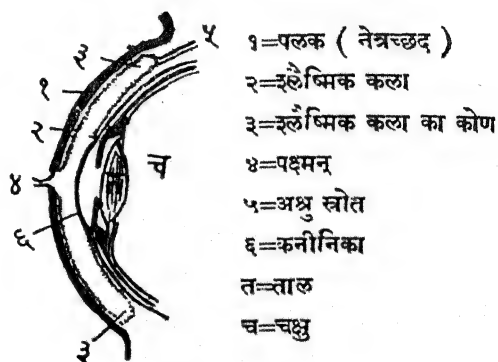 ३
५
१
२
४
च
६
३
१=पलक ( नेत्रच्छद )
२=श्लैष्मिक कला
३=श्लैष्मिक कला का कोण
४=पक्ष्मन्
५=अश्रु स्त्रोत
६=कनीनिका
त=ताल
च=चक्षु